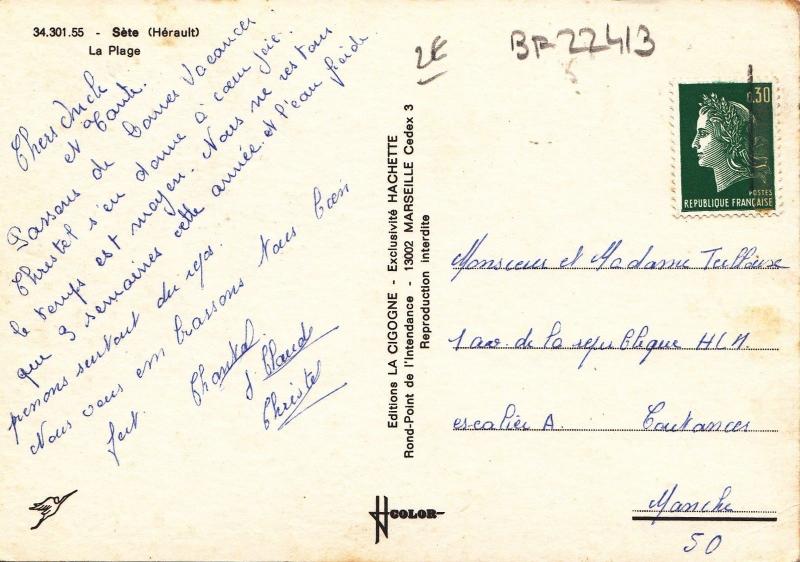 34.301.55 - Sète (Hérault)
La Plage
2€
BF 22413
Chers Oncle
et Tante.
Passons de bonnes Vacances
Christel s'en donne à cœur joie.
le temps est moyen. Nous ne restons
que 3 semaines cette année. et l'eau froide
prenons surtout du repos. Nous
Nous vous embrassons bien
fort. Chantal
J Claude
Christel
Editions LA CIGOGNE - Exclusivité HACHETTE
Rond-Point de l'Intendance - 13002 MARSEILLE Cedex 3
Reproduction interdite
0.30
POSTES
REPUBLIQUE FRANÇAISE
Monsieur et Madame
1 av. de la republique HLM
escalier A. Coutances
Manche
50
COLOR